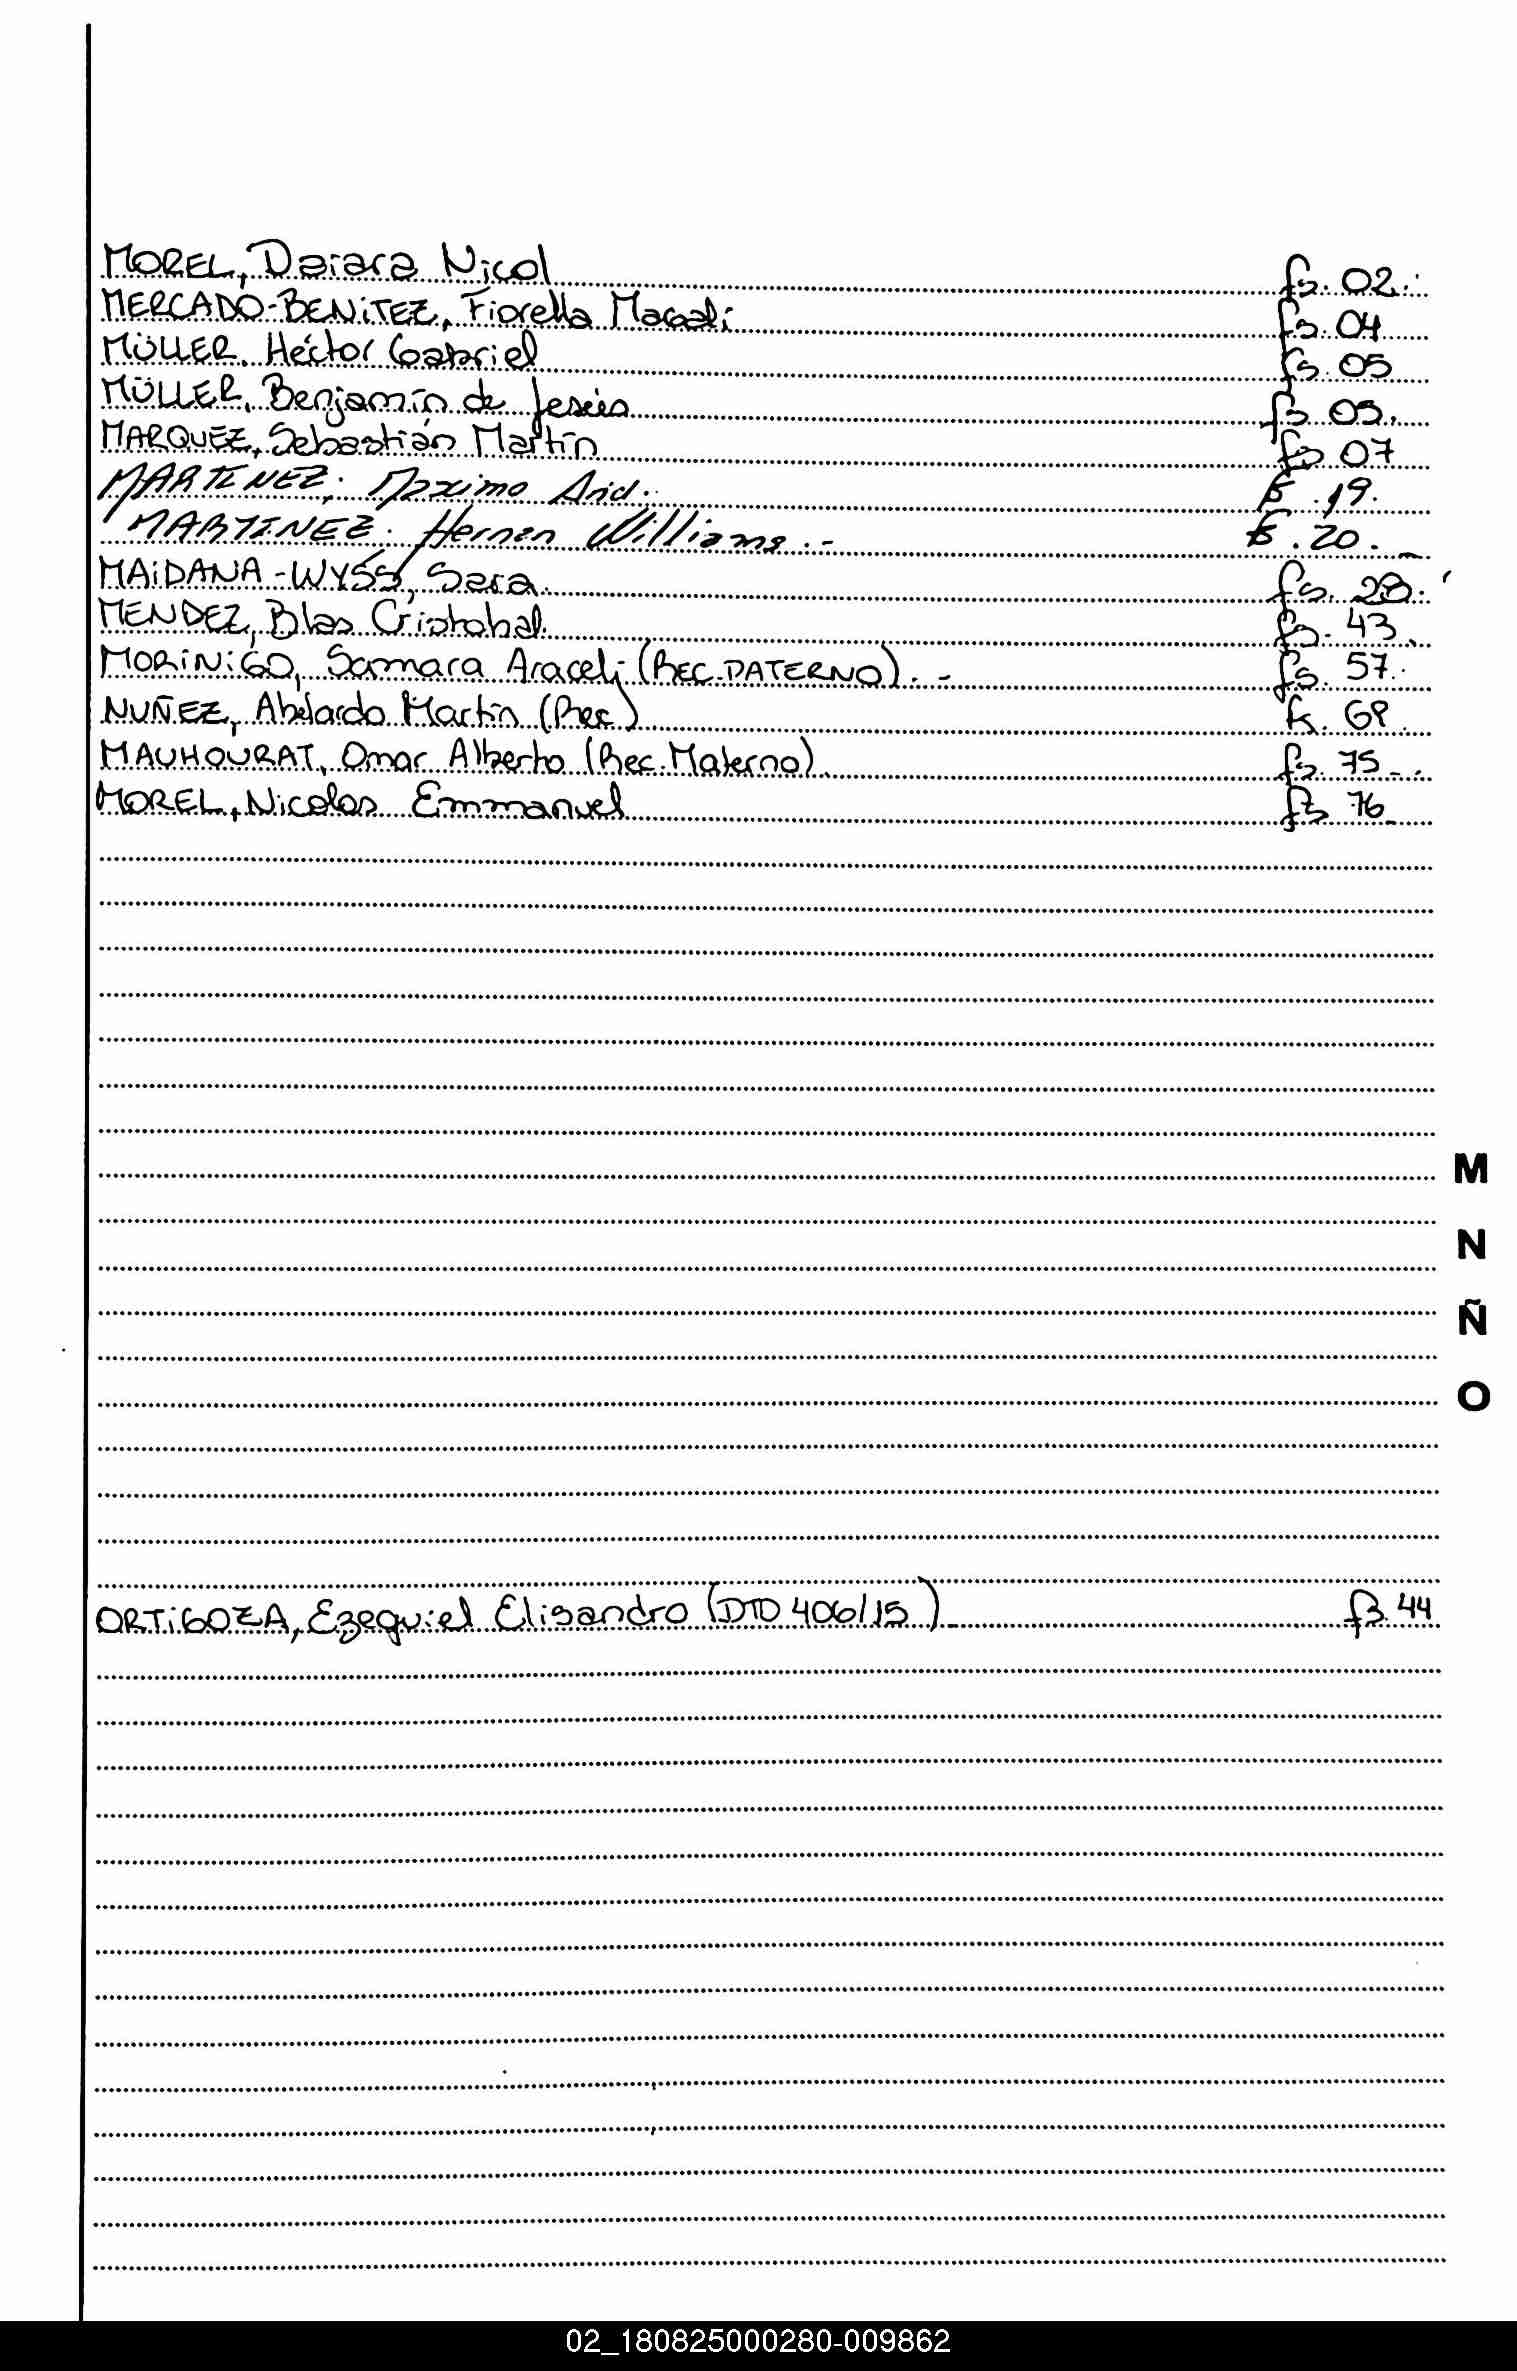 MOREL, Daiara Nicol fs. 02.
MERCADO-BENiTEZ, Fiorella Magali fs. 04
MÜLLER, Héctor Gabriel fs. 05
MÜLLER, Benjamín de Jesús fs 05.
MARQUEZ, Sebastián Martín fs 07
MARTINEZ, Maximo Ariel. 19.
MARTINEZ. Hernan Williams.- 20.-
MAiDANA-WYSS, Sara. fs. 28.
MENDEZ, Blas Cristobal. fs. 43
MORiNiGO, Samara Araceli (REC.PATERNO).- fs. 57.
NUÑEZ, Abelardo Martín (Rec) fs. 68
MAUHOURAT, Omar Alberto (Rec. Materno) fs. 75-.
MOREL, Nicolas Emmanuel fs 76
M
N
Ñ
O
ORTiGOZA, Ezequiel Elisandro (DTO 406/15) fs. 44
02_180825000280-009862